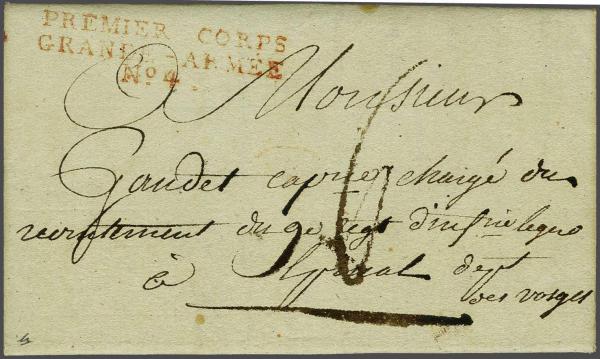 PREMIER CORPS
GRANDE ARMÉE
No. 4
Monsieur
Gaudet capne chargé du
recrutement du 9e Regt d'infrie legre
à Epinal dept
des vosges